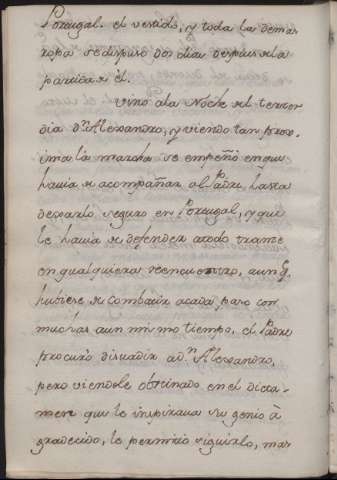 Portugal. el vestido, y toda la demas
ropa se dispuso dos dias despues de la
partida de el.
vino a la Noche del tercer
dia Dn. Alexandro, y viendo tan prox-
ima la marcha se empeñó en que
havia de acompañar al Padre hasta
dexarlo seguro en Portugal, y que
le havia de defender a todo trance
en qualquiera reencuentro, aunq
hubiese de combatir a cada paso con
muchos a un mismo tiempo. el Padre
procuró disuadir a Dn. Alexandro,
pero viendole obstinado en el dicta-
men que le inspirava su genio à
gradecido, le permitió seguirlo, mas